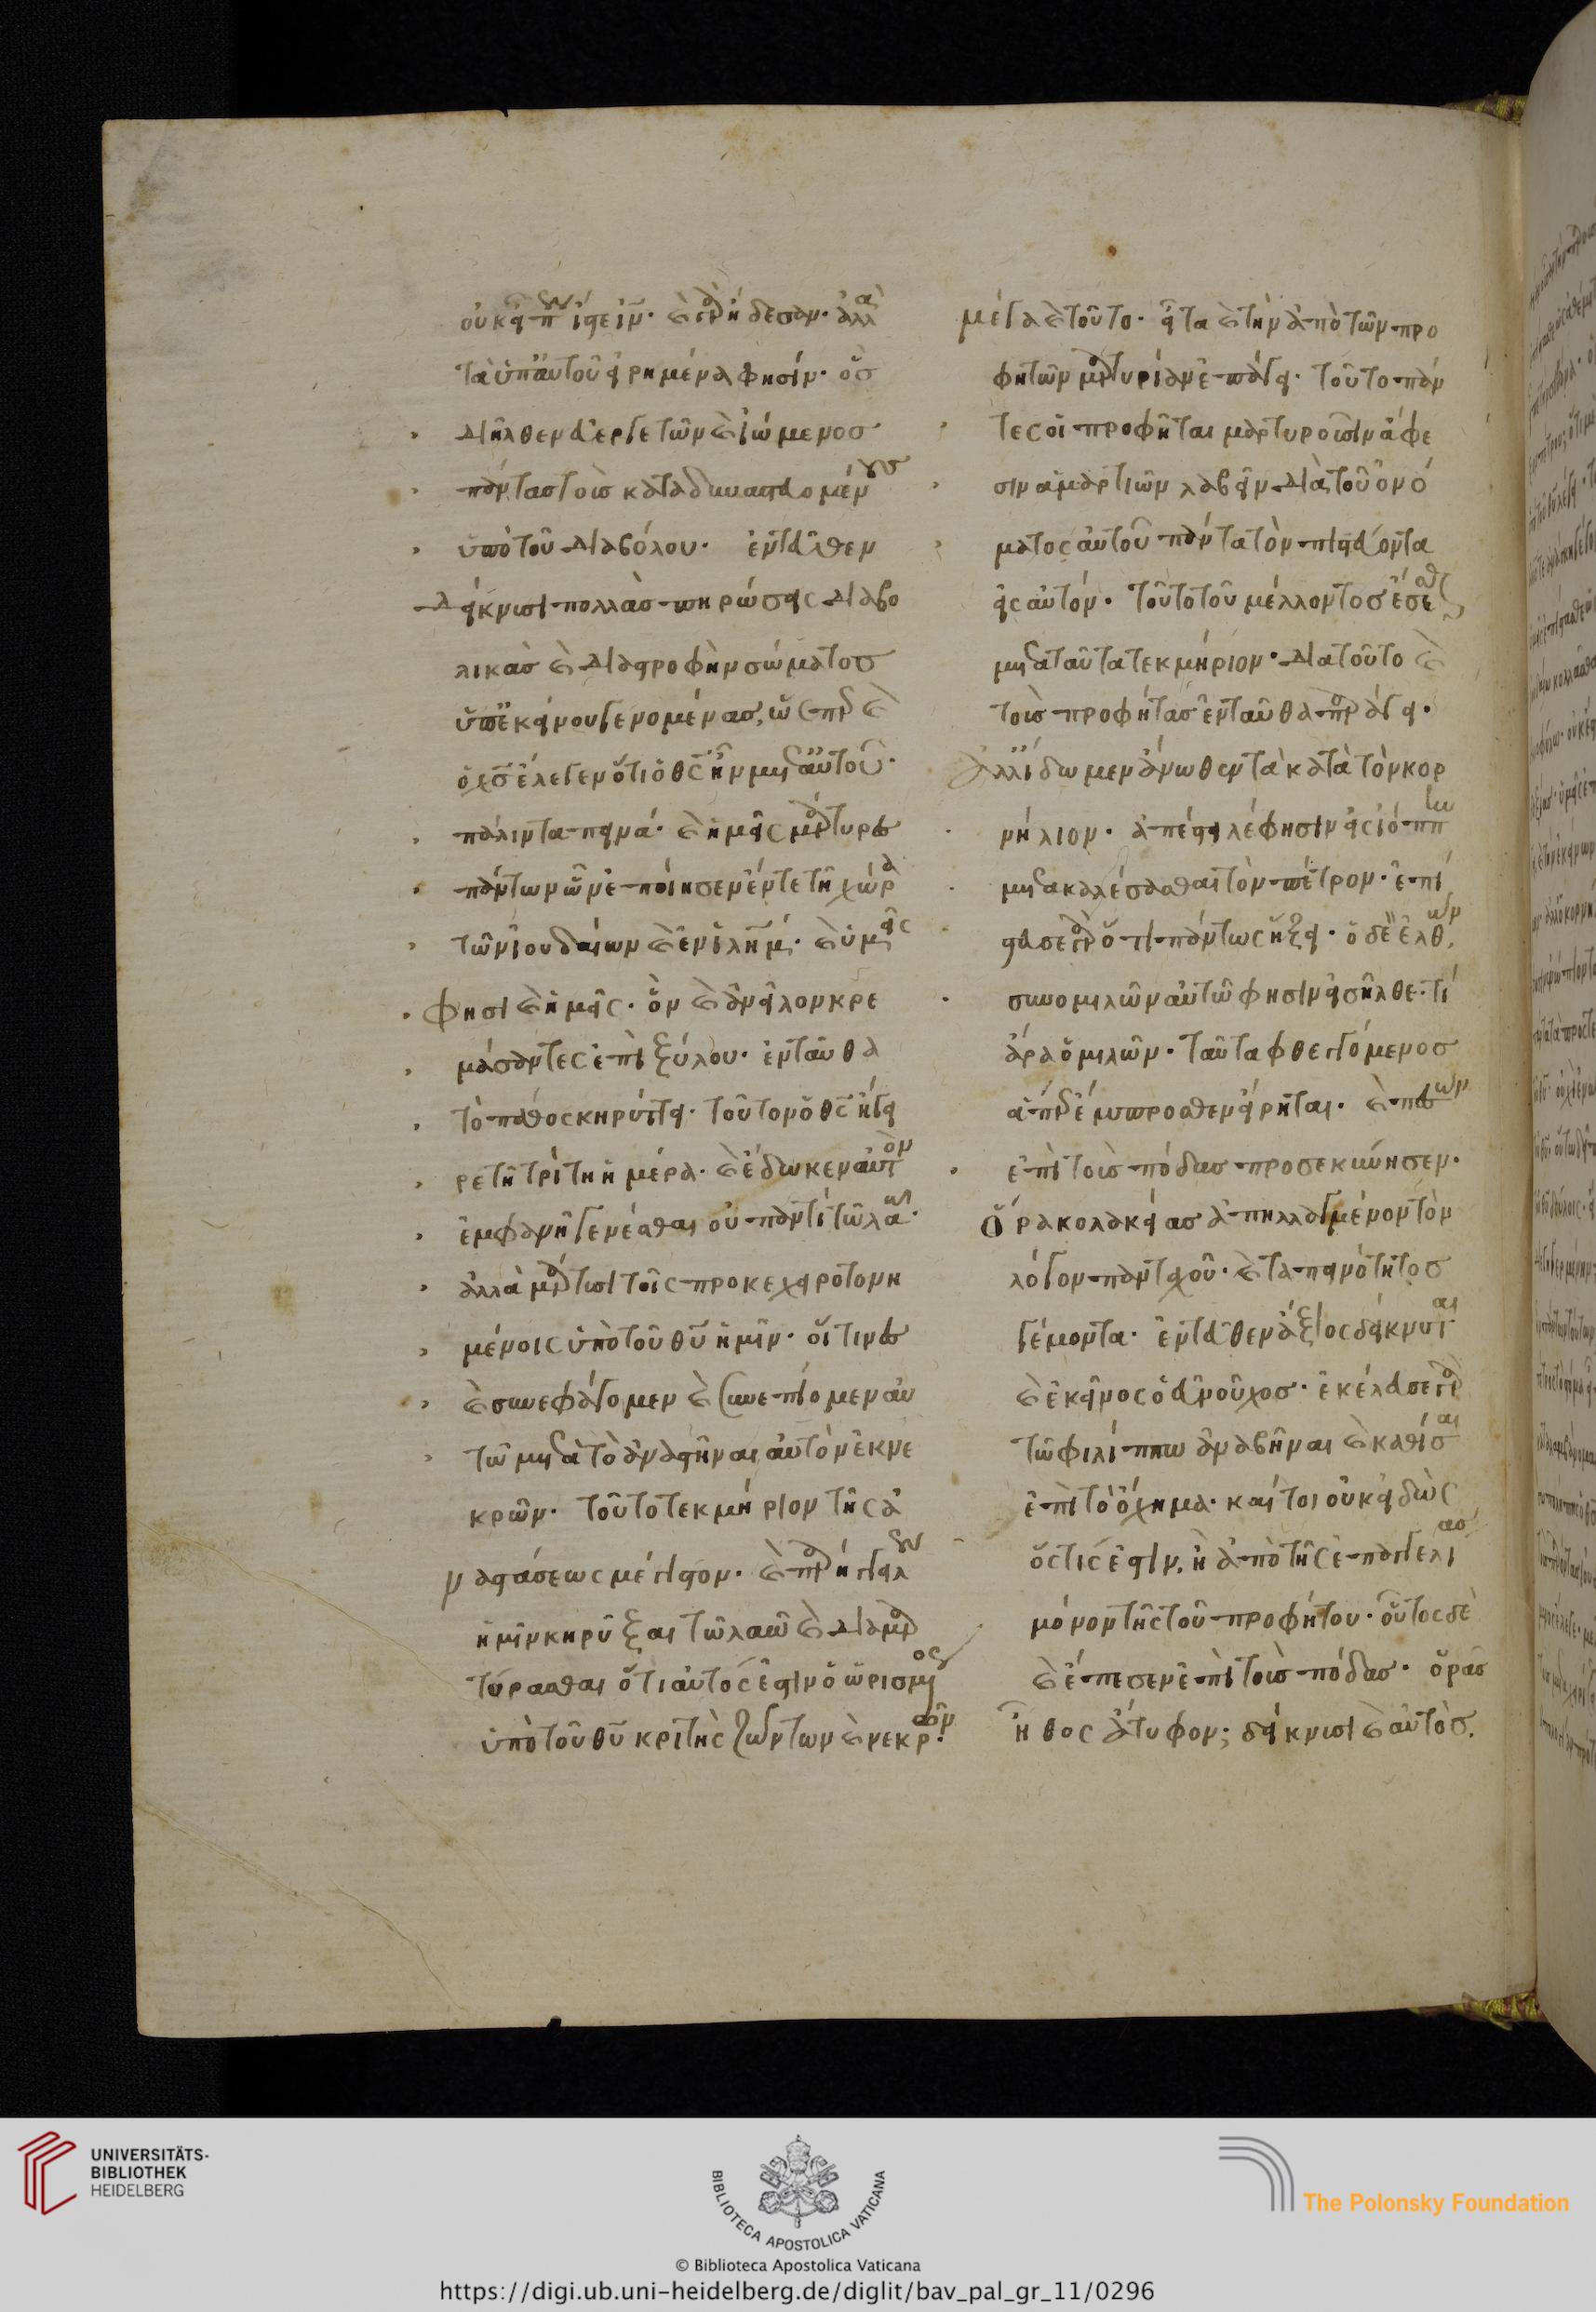 οὐκ εἶπεν ἴστε ιν. οὐ γὰρ ᾔδεσαν. ἀλλὰ
τὰ ὑπ' αὐτοῦ εἰρημένα φησίν. ὃσ
διῆλθεν εὐεργετῶν καὶ ἰώμενοσ
πάντασ τοὺσ καταδυναστευομένουσ
ὑπὸ τοῦ διαβόλου. ἐντεῦθεν
δείκνυσι πολλὰσ πηρώσεις διαβο
λικὰσ καὶ διαστροφὴν σώματοσ
ὑπ' ἐκείνου γενομένασ, ὥσπερ καὶ
ὁ χσ ἔλεγεν ὅτι ὁ θς ἦν μετ' αὐτοῦ.
πάλιν ταπεινά. καὶ ἡμεῖς μάρτυρες
πάντων ὧν ἐποίησεν ἔν τε τῇ χώρᾳ
τῶν ἰουδαίων καὶ ἐν ἰλημ. καὶ ὑμεῖς
φησι καὶ ἡμεῖς. ὃν καὶ ἀνεῖλον κρε
μάσαντες ἐπὶ ξύλου. ἐνταῦθα
τὸ πάθος κηρύττει. τοῦτον ὁ θς ἤγει
ρε τῇ τρίτῃ ἡμέρᾳ. καὶ ἔδωκεν αὐτὸν
ἐμφανῆ γενέσθαι οὐ παντὶ τῷ λαῷ.
ἀλλὰ μάρτυσι τοῖς προκεχειροτονη
μένοις ὑπὸ τοῦ θυ ἡμῖν. οἵτινες
καὶ συνεφάγομεν καὶ συνεπίομεν αὐ
τῷ μετὰ τὸ ἀναστῆναι αὐτὸν ἐκ νε
κρῶν. τοῦτο τεκμήριον τῆς ἀ
ναστάσεως μέγιστον. καὶ παρήγγειλεν
ἡμῖν κηρῦξαι τῷ λαῷ καὶ διαμαρ
τύρασθαι ὅτι αὐτός ἐστιν ὁ ὡρισμένος
ὑπὸ τοῦ θυ κριτὴς ζώντων καὶ νεκρῶν.
μέγα καὶ τοῦτο. εἶτα καὶ τὴν ἀπὸ τῶν προ
φητῶν μαρτυρίαν ἐπάγει. τοῦτο πάν
τες οἱ προφῆται μαρτυροῦσιν ἄφε
σιν ἁμαρτιῶν λαβεῖν διὰ τοῦ ὀνό
ματος αὐτοῦ πάντα τὸν πιστεύοντα
εἰς αὐτόν. τοῦτο τοῦ μέλλοντοσ ἔσεσθαι
μετὰ ταῦτα τεκμήριον. διὰ τοῦτο καὶ
τοὺσ προφήτασ ἐνταῦθα παράγει.
ἀλλ' ἴδωμεν ἄνωθεν τὰ κατὰ τὸν κορ
νήλιον. ἀπέστειλέ φησιν εἰς ἰόππην
μετακαλέσασθαι τὸν πέτρον. ἐπί
στευσε γὰρ ὅτι πάντως ἥξει. ὁ δὲ ἐλθὼν
συνομιλῶν αὐτῷ φησιν εἰσῆλθε. τί
ἄρα ὁμιλῶν. ταῦτα φθεγγόμενοσ
ἅπερ ἔμπροσθεν εἴρηται. καὶ πεσὼν
ἐπὶ τοὺσ πόδασ προσεκύνησεν.
Ὅρα κολακείασ ἀπηλλαγμένον τὸν
λόγον πανταχοῦ. καὶ ταπεινότητοσ
γέμοντα. ἐντεῦθεν ἄξιος δείκνυται
καὶ ἐκεῖνος ὁ εὐνοῦχοσ. ἐκέλευσε γὰρ
τῷ φιλίππῳ ἀναβῆναι καὶ καθίσαι
ἐπὶ τὸ ὄχημα. καίτοι οὐκ εἰδὼς
ὅστις ἐστίν, ἢ ἀπὸ τῆς ἐπαγγελίασ
μόνον τῆς τοῦ προφήτου. οὗτος δὲ
καὶ ἔπεσεν ἐπὶ τοὺσ πόδασ. ὅρᾶσ
ἦθος ἄτυφον; δείκνυσι καὶ αὐτὸσ.
UNIVERSITÄTS-
BIBLIOTHEK
HEIDELBERG
BIBLIOTECA APOSTOLICA VATICANA
© Biblioteca Apostolica Vaticana
The Polonsky Foundation
https://digi.ub.uni-heidelberg.de/diglit/bav_pal_gr_11/0296